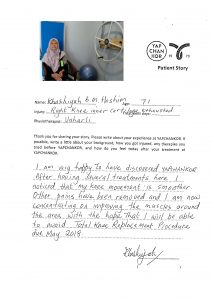 YAP
CHAN
KOR
Patient Story
Name: Khashiyah b. m. Hashim Age: 71
Injury: Right Knee inner Cartilage exhausted
Physiotherapist:
Thank you for sharing your story. Please write about your experience at YAPCHANKOR. If
possible, write a little about your background, how you got injured, any therapies you
tried before YAPCHANKOR, and how do you feel makes after your treatment at
YAPCHANKOR.
I am very happy to have discovered YAPCHANKOR
After having several treatments here I
noticed that my knee movement is smoother
Other pains have been removed and I am now
concentrating on improving the muscles around
the area with the hope that I will be able
to avoid Total Knee Replacement Procedure
due May 2018.